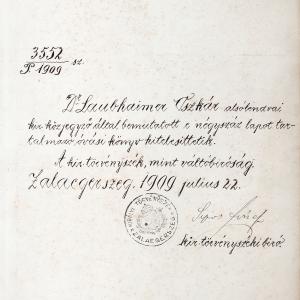 3552
P. 1909 sz.
Dr Laubhaimer Oszkár alsólendvai
kir. közjegyző által bemutatott e négyszáz lapot tar-
talmazó óvási könyv hitelesíttetik.
A kir. törvényszék, mint váltóbíróság.
Zalaegerszeg, 1909 julius 22.
KIRÁLYI TÖRVÉNYSZÉK
ZALAEGERSZEG
kir. törvényszéki bíró.